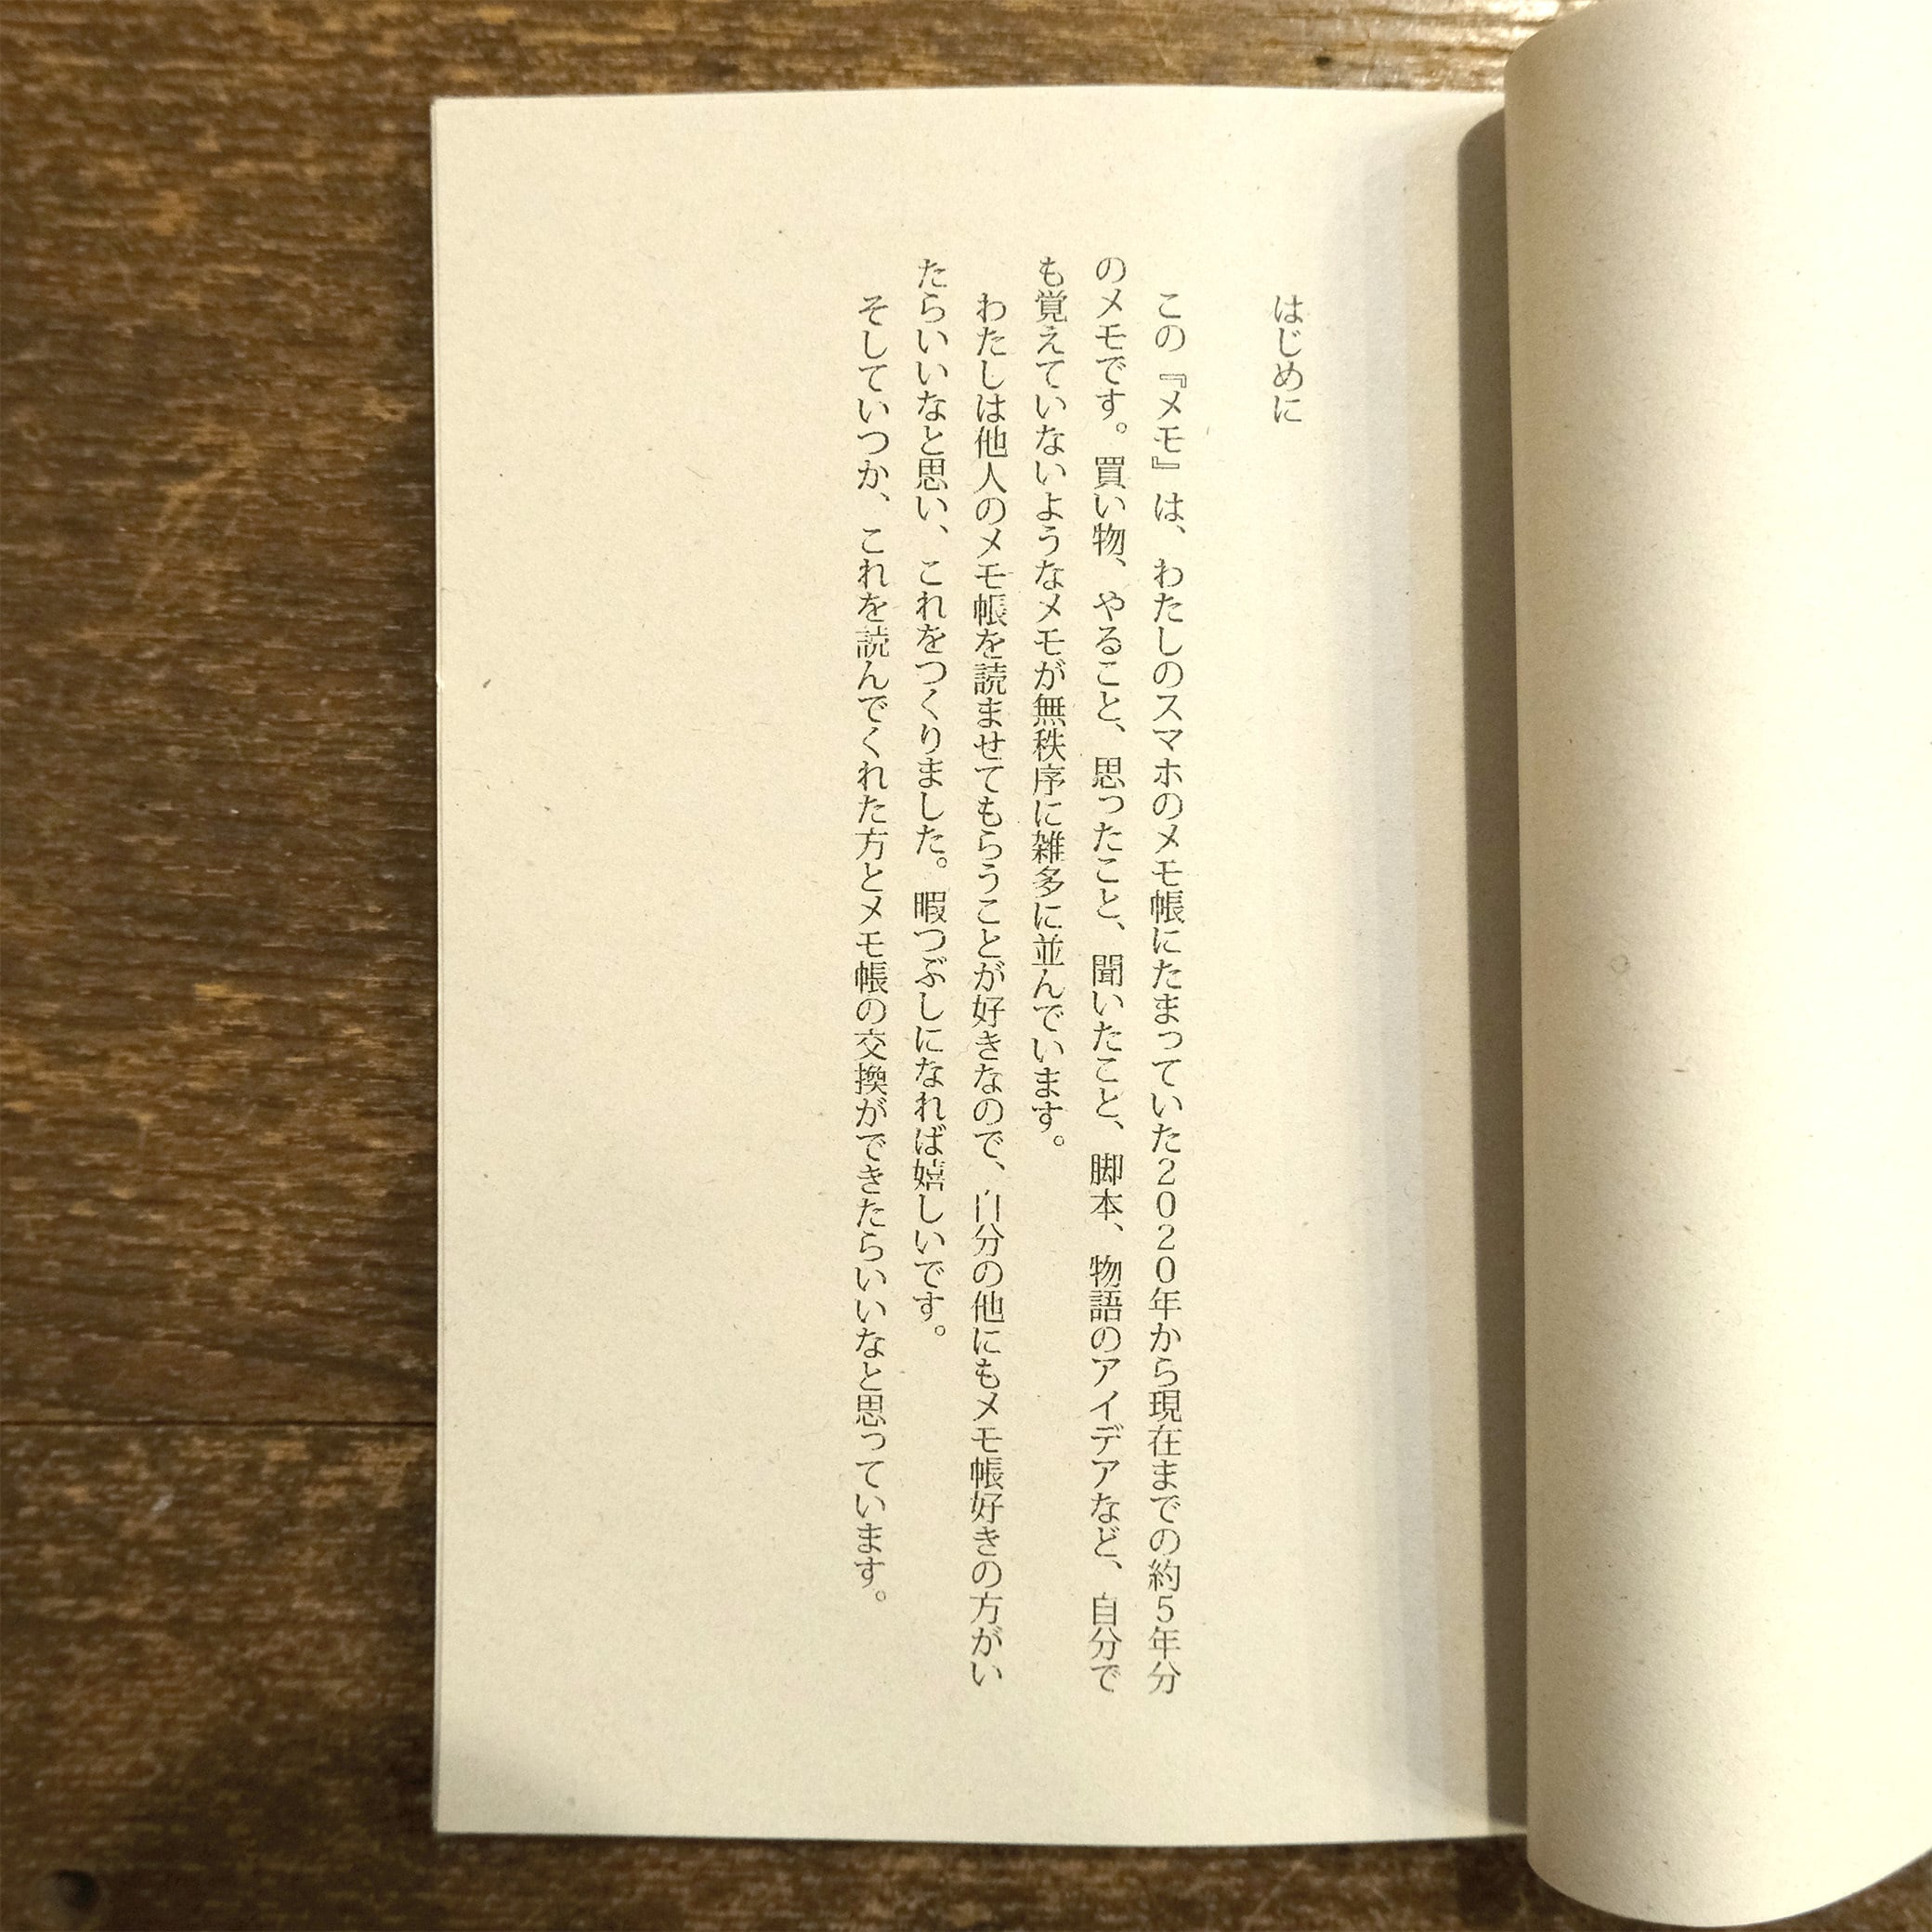 はじめに
この『メモ』は、わたしのスマホのメモ帳にたまっていた2020年から現在までの約5年分
のメモです。買い物、やること、思ったこと、聞いたこと、脚本、物語のアイデアなど、自分で
も覚えていないようなメモが無秩序に雑多に並んでいます。
わたしは他人のメモ帳を読ませてもらうことが好きなので、自分の他にもメモ帳好きの方がい
たらいいなと思い、これをつくりました。暇つぶしになれば嬉しいです。
そしていつか、これを読んでくれた方とメモ帳の交換ができたらいいなと思っています。